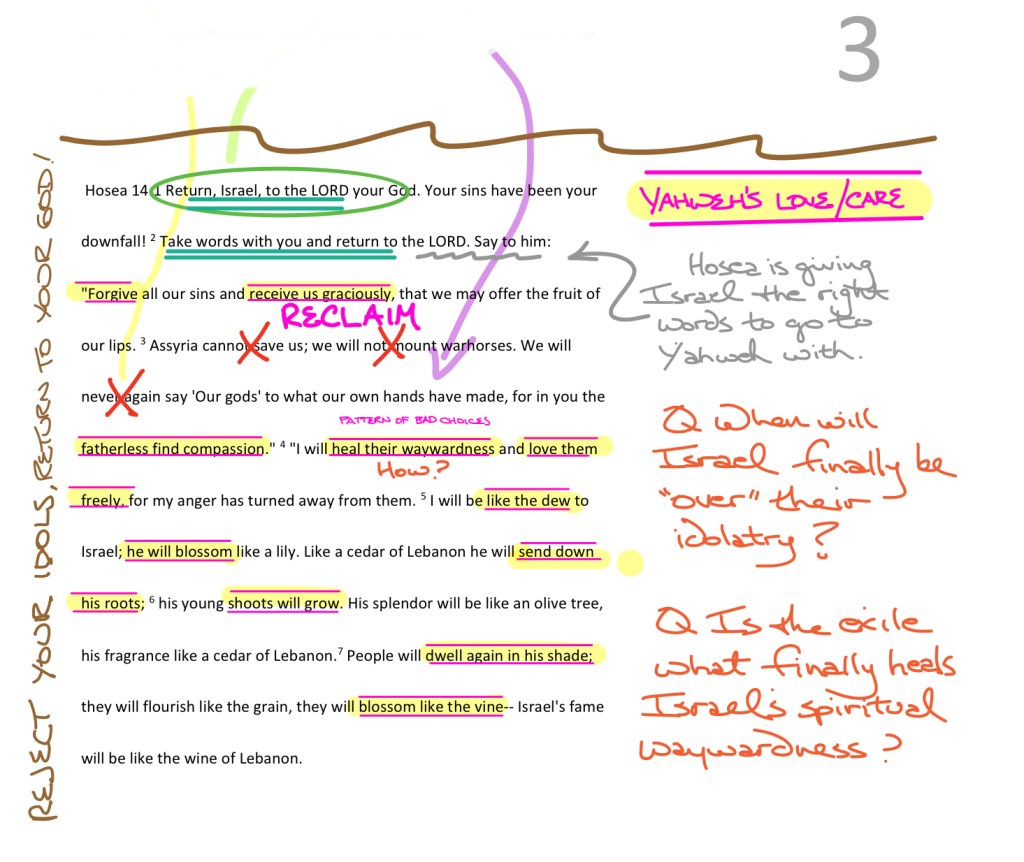 3
Hosea 14:1 Return, Israel, to the LORD your God. Your sins have been your
downfall! 2 Take words with you and return to the LORD. Say to him:
"Forgive all our sins and receive us graciously, that we may offer the fruit of
RECLAIM
our lips. 3 Assyria cannot save us; we will not mount warhorses. We will
never again say 'Our gods' to what our own hands have made, for in you the
PATTERN OF BAD CHOICES
fatherless find compassion." 4 "I will heal their waywardness and love them
How?
freely, for my anger has turned away from them. 5 I will be like the dew to
Israel; he will blossom like a lily. Like a cedar of Lebanon he will send down
his roots; 6 his young shoots will grow. His splendor will be like an olive tree,
his fragrance like a cedar of Lebanon.7 People will dwell again in his shade;
they will flourish like the grain, they will blossom like the vine-- Israel's fame
will be like the wine of Lebanon.
REJECT YOUR IDOLS, RETURN TO YOUR GOD!
YAHWEH'S LOVE/CARE
Hosea is giving
Israel the right
words to go to
Yahweh with.
Q When will
Israel finally be
"over" their
idolatry?
Q Is the exile
what finally heals
Israel's spiritual
waywardness?